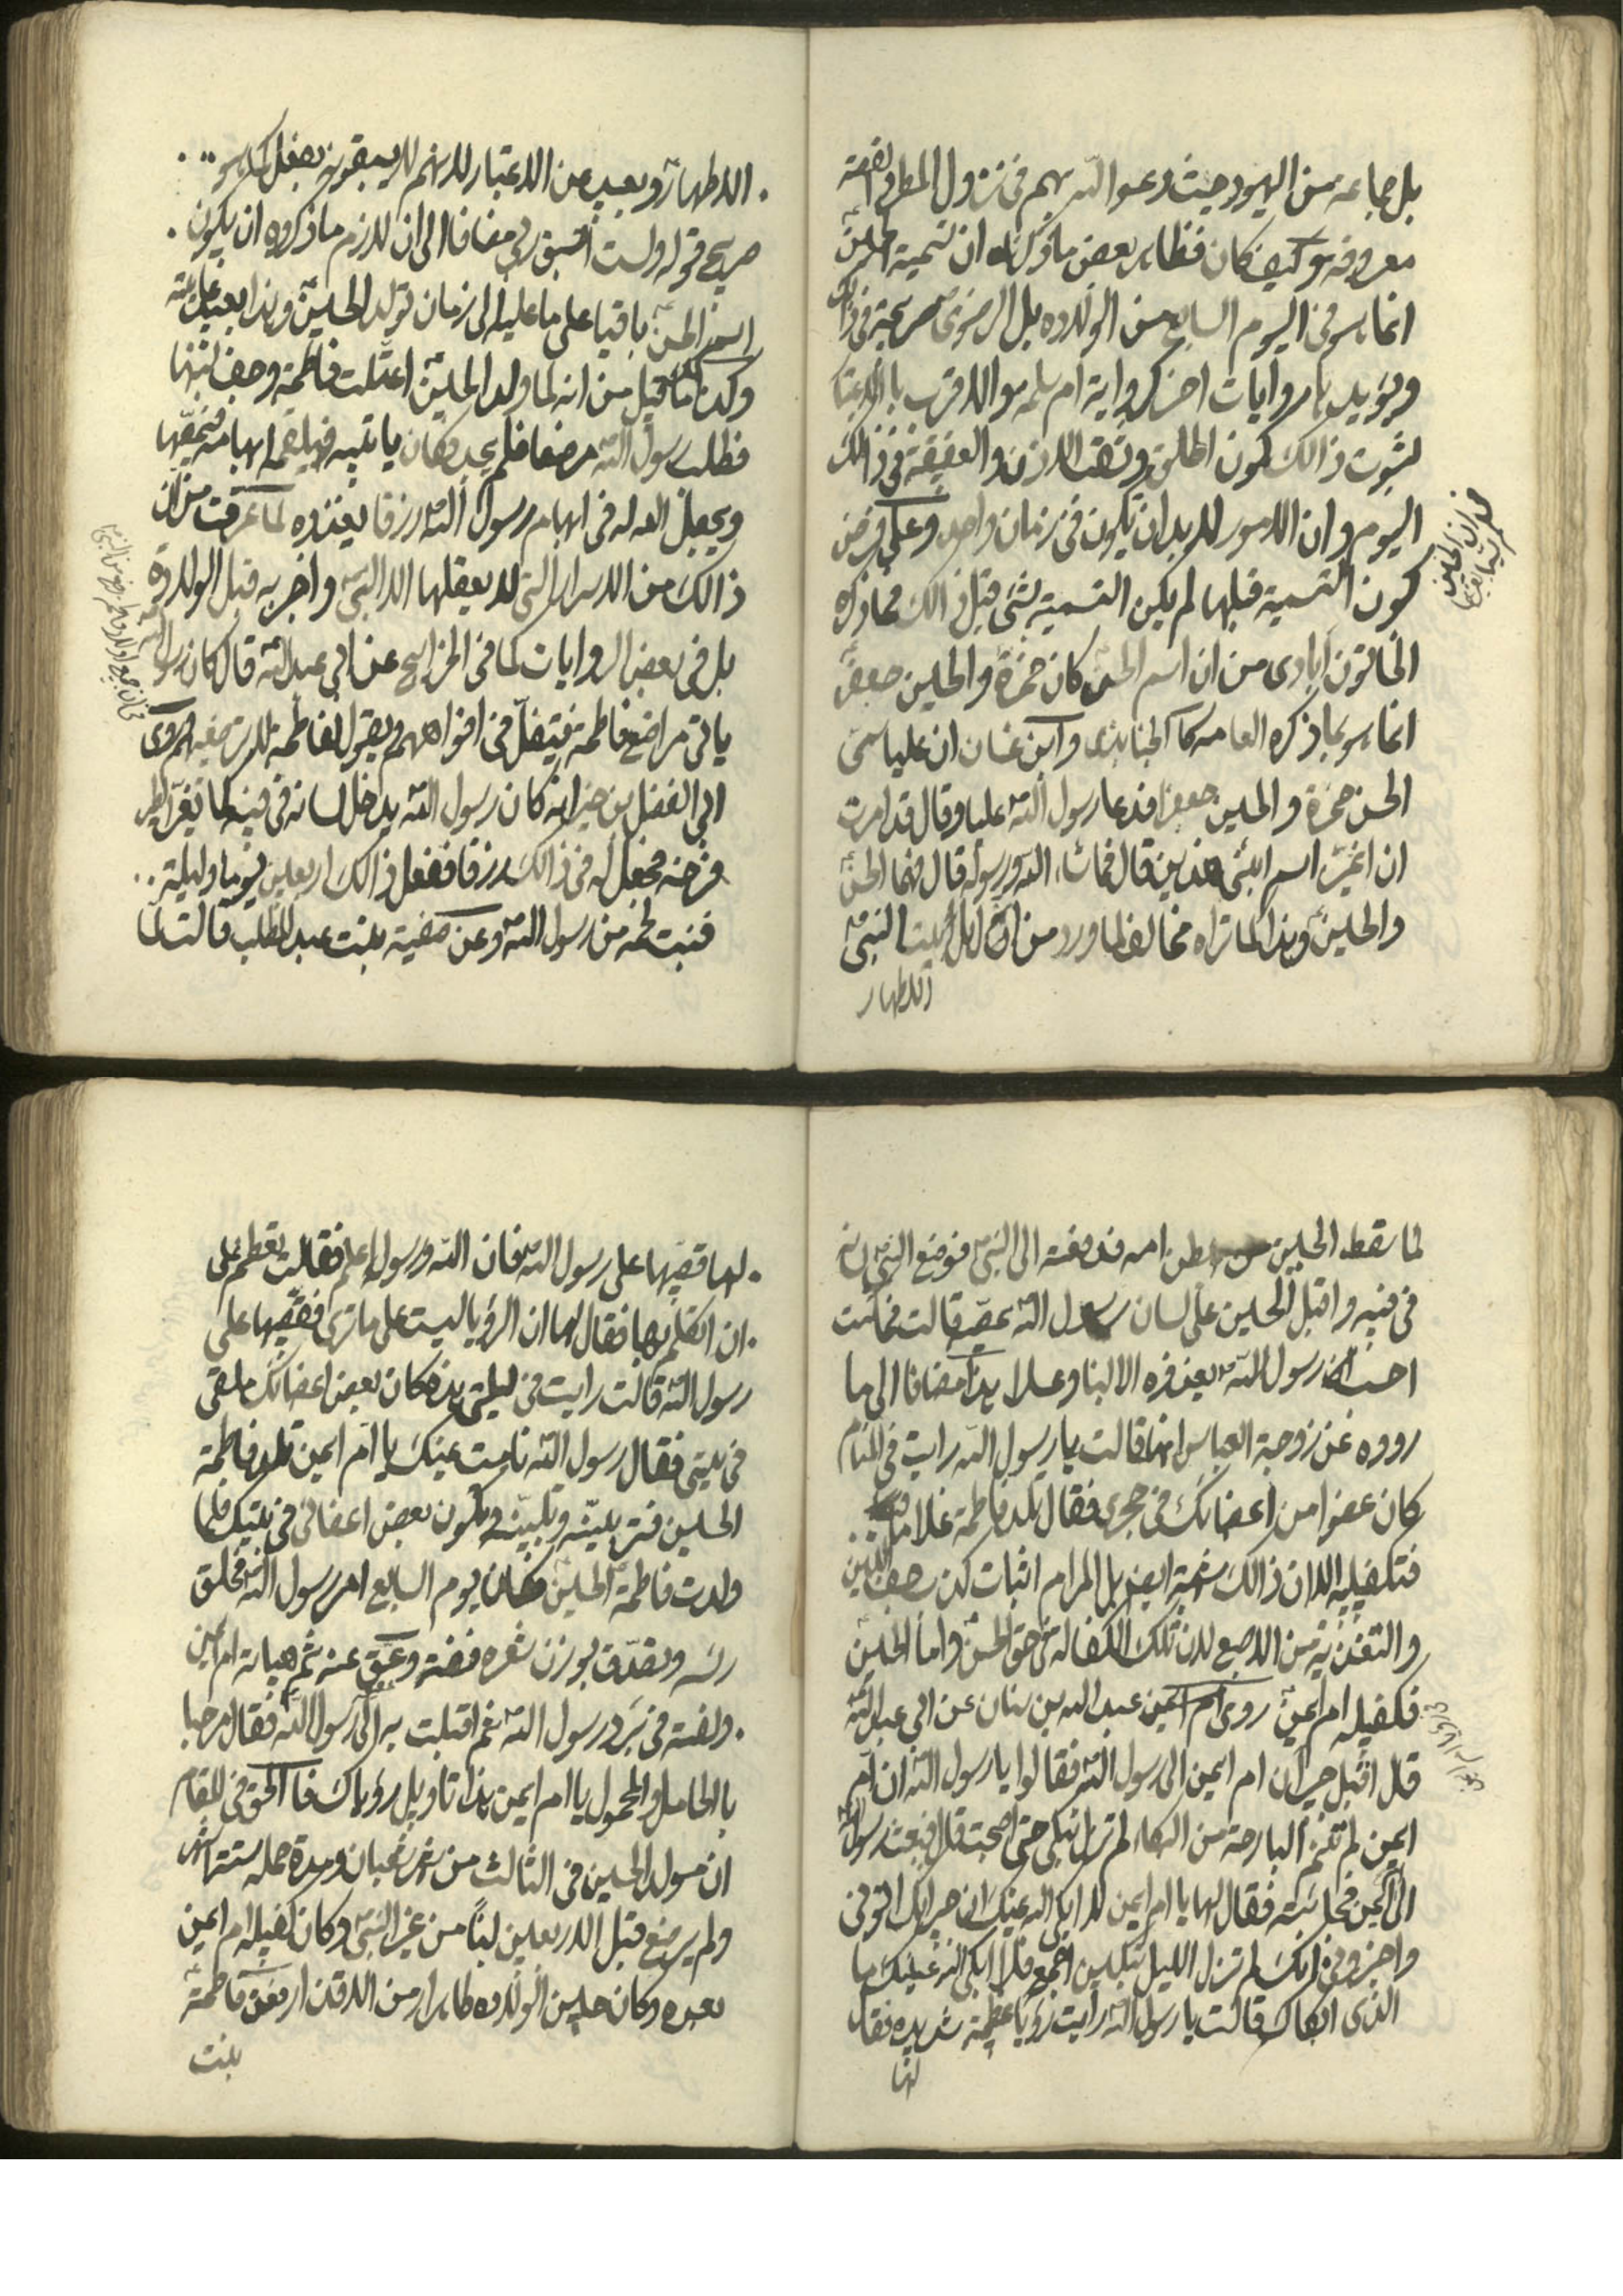 بل جماعه من اليهود حيث دعوا الله بهم فى نزول المطر فى قصة
معروفه وكيف كان فظاهر بعض ما ذكرناه ان تسمية الحسن
انما هو فى اليوم السابع من الولاده بل الرضوى صريحة فى ذلك
ويؤيده روايات اخر كرواية ام سلمه هو الاقرب بالاعتبار
لثبوت ذالك كون الحلق وثقب الاذن والعقيقة فى ذالك
اليوم وان الامور لابد ان تكون فى زمان واحد وعلى فرض
كون التسمية قبلها لم يكن التسمية بشئ قبل ذالك فما ذكره
الخاتون ابادى من ان اسم الحسن كان حمزة والحسين جعفر
انما هو مما ذكره العامه كالجنابذى وابن غسان ان عليا سمى
الحسن حمزة والحسين جعفرا فدعا رسول الله عليا وقال قد امرت
ان اغير اسم ابنى هذين قال فما شاء الله ورسوله قال فهما الحسن
والحسين وهذا كما تراه مخالف لما ورد من ان اهل بيت النبى
الاطهار
الاطهار وبعيد عن الاعتبار لانهم لا يسبقونه بفعل كما هو
صريح قوله ولست اسبق ربى مضافا الى ان لازم ما ذكروه ان يكون
اسم الحسن باقيا على ما عليه الى زمان تولد الحسين وهذا بعيد غايته
وكذا ما قيل من انه لما ولد الحسين اعتلت فاطمة وجف لبنها
فطلب رسول الله مرضعا فلم يجد فكان ياتيه فيلقمه ابهامه فيمصها
ويجعل الله له فى ابهام رسول الله رزقا يغذوه لما عرفت من ان
ذالك من الاسرار التى لا يعقلها الا النبى واخبر به قبل الولادة
بل فى بعض الروايات كما فى الخرايج عن ابى عبد الله قال كان رسول الله
ياتى مراضع فاطمة فيتفل فى افواههم ويقول لفاطمة لا ترضعيهم وروى
ابى الفضل بن خيرانه كان رسول الله يدخل لسانه فى فيه كما يغر الطير
فرخه فجعل له فى ذالك رزقا ففعل ذالك اربعين يوما وليلة
فنبت لحمه من رسول الله وعن صفية بنت عبد المطلب قالت لما
لما سقط الحسين من بطن امه فدفعته الى النبى فوضع النبى لسانه
فى فيه واقبل الحسين على لسان رسول الله يمصه قالت فما كنت
احسب رسول الله يغذوه الا لبنا وعسلا هذا مضافا الى ما
رووه عن زوجة العباس انها قالت يا رسول الله رايت فى المنام
كان عضوا من اعضائك فى حجرى فقال تلد فاطمة غلاما
فتكفليه الا ان ذالك اثبات كذب جف اللبن
والتغذية من الاصبع لان تلك الكفالة فى حق الحسن واما الحسين
فكفيله ام ايمن روى عبد الله بن سنان عن ابى عبد الله
قال اقبل جيران ام ايمن الى رسول الله فقالوا يا رسول الله ان ام
ايمن لم تنم البارحة من البكاء لم تزل تبكى حتى اصبحت قال فبعث رسول الله
الى ام ايمن فجاءته فقال لها يا ام ايمن لا ابكى الله عينك ان جيرانك اتونى
واخبرونى انك لم تزل الليل تبكين اجمع فلا ابكى الله عينك ما
الذى ابكاك قالت يا رسول الله رايت رؤيا عظيمة شديده فقال
لها
لها قصيها على رسول الله فان الله ورسوله اعلم فقالت يعظم على
ان اتكلم بها فقال لها ان الرؤيا ليست على ما ترى فقصيها على
رسول الله قالت رايت فى ليلتى هذه كان بعض اعضائك ملقى
فى بيتى فقال رسول الله نامت عينك يا ام ايمن تلد فاطمة
الحسين فتربينه وتلبينه فيكون بعض اعضائى فى بيتك فلما
ولدت فاطمة الحسين فكان يوم السابع امر رسول الله فحلق
رسه وتصدق بوزن شعره فضة وعق عنه ثم هياته ام ايمن
ولفته فى برد رسول الله ثم اقبلت به الى رسول الله فقال مرحبا
بالحامل والمحمول يا ام ايمن هذا تاويل رؤياك فالحق فى المقام
ان مولد الحسين فى الثالث من شهر شعبان ومدة حمله ستة اشهر
ولم يرضع قبل الاربعين لبنا من غير النبى وكان كفيله ام ايمن
بعده وكان حين الولاده طاهرا من الاقذار فعق فاطمة
بنت